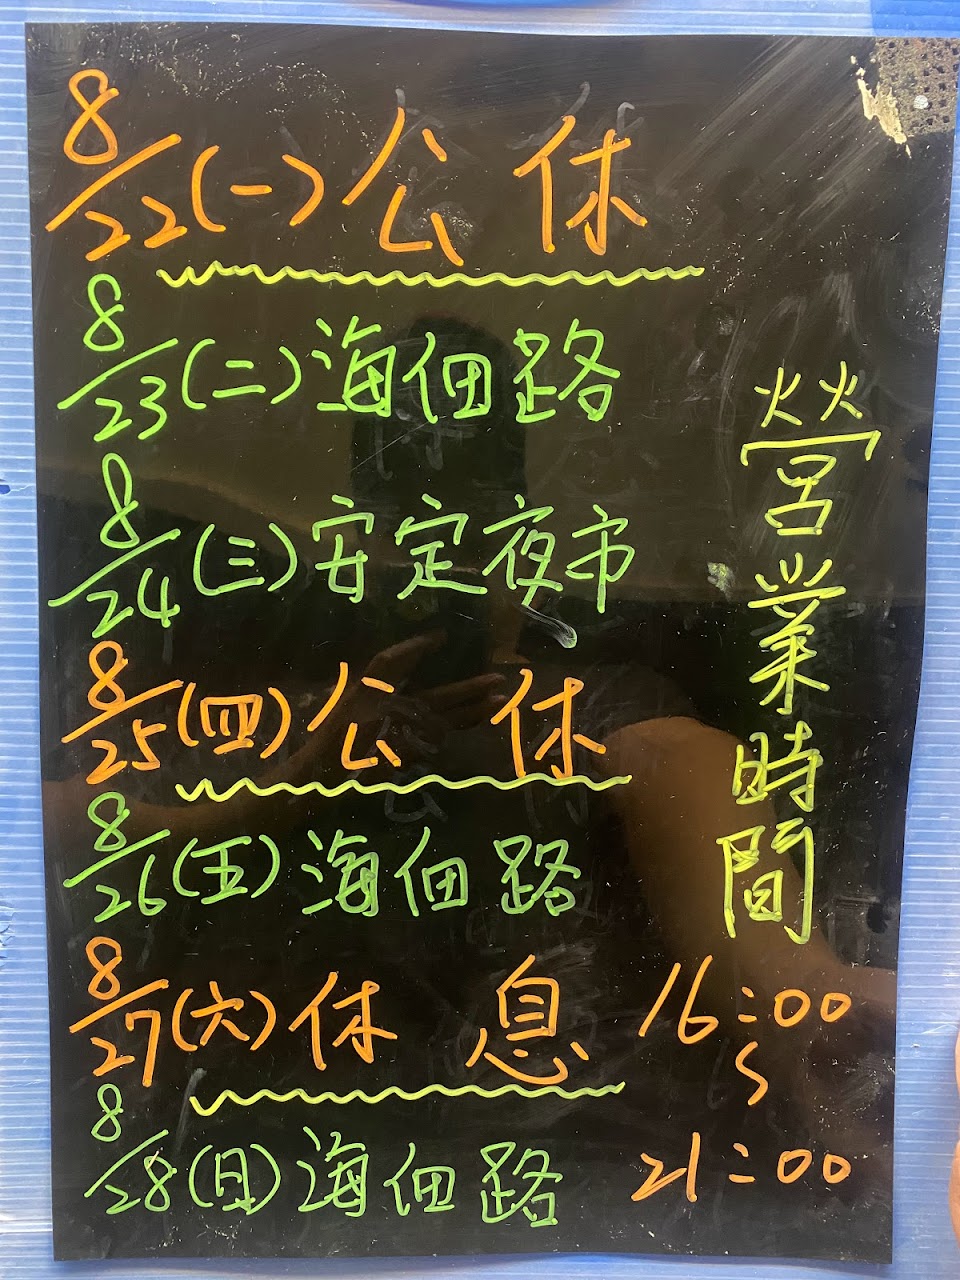 8/22(一)公休
8/23(二)海佃路
8/24(三)安定夜市
8/25(四)公休
8/26(五)海佃路
8/27(六)休息
8/28(日)海佃路
營業時間
16:00
~
21:00